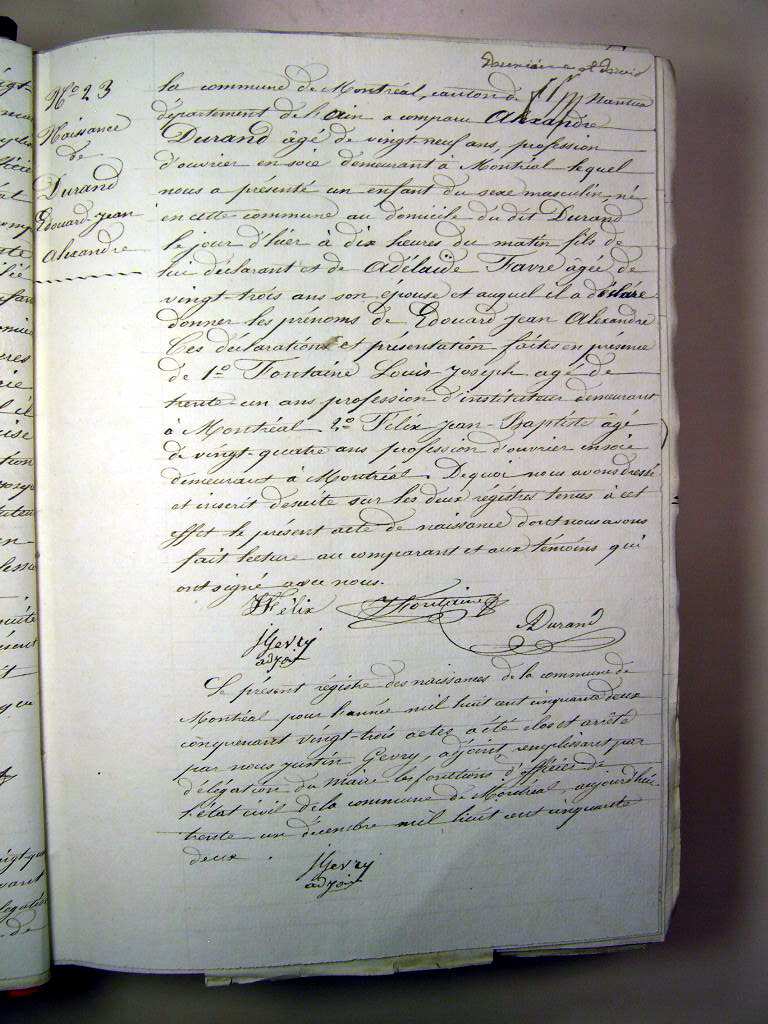 No 23
Naissance
de
Durand
Edouard Jean
Alexandre
la commune de Montréal, canton de Nantua
département de l'ain a comparu Alexandre
Durand âgé de vingt-neuf ans, profession
d'ouvrier en soie demeurant à Montréal lequel
nous a présenté un enfant du sexe masculin, né
en cette commune au domicile du dit Durand
le jour d'hier à dix heures du matin fils de
lui déclarant et de Adélaïde Favre âgée de
vingt-trois ans son épouse et auquel il a déclaré
donner les prénoms de Edouard Jean Alexandre
Ces déclarations et présentation faites en présence
de 1o Fontaine Louis-Joseph agé de
trente-un ans profession d'instituteur demeurant
à Montréal 2o Félix Jean-Baptiste âgé
de vingt-quatre ans profession d'ouvrier en soie
demeurant à Montréal. De quoi nous avons dressé
et inscrit desuite sur les deux régistres tenus à cet
effet le présent acte de naissance dont nous avons
fait lecture au comparant et aux témoins qui
ont signé avec nous.
Félix Fontaine
Durand
JGevry
adjoint
Le présent régistre des naissances de la commune de
Montréal pour l'année mil huit cent cinquante deux
comprenant vingt-trois actes a été clos et arrêté
par nous Justin Gevry, adjoint, remplissant par
délégation du maire les fonctions d'officier de
l'état civil de la commune de Montréal, aujourd'hui
trente un décembre mil huit cent cinquante
deux.
JGevry
adjoint